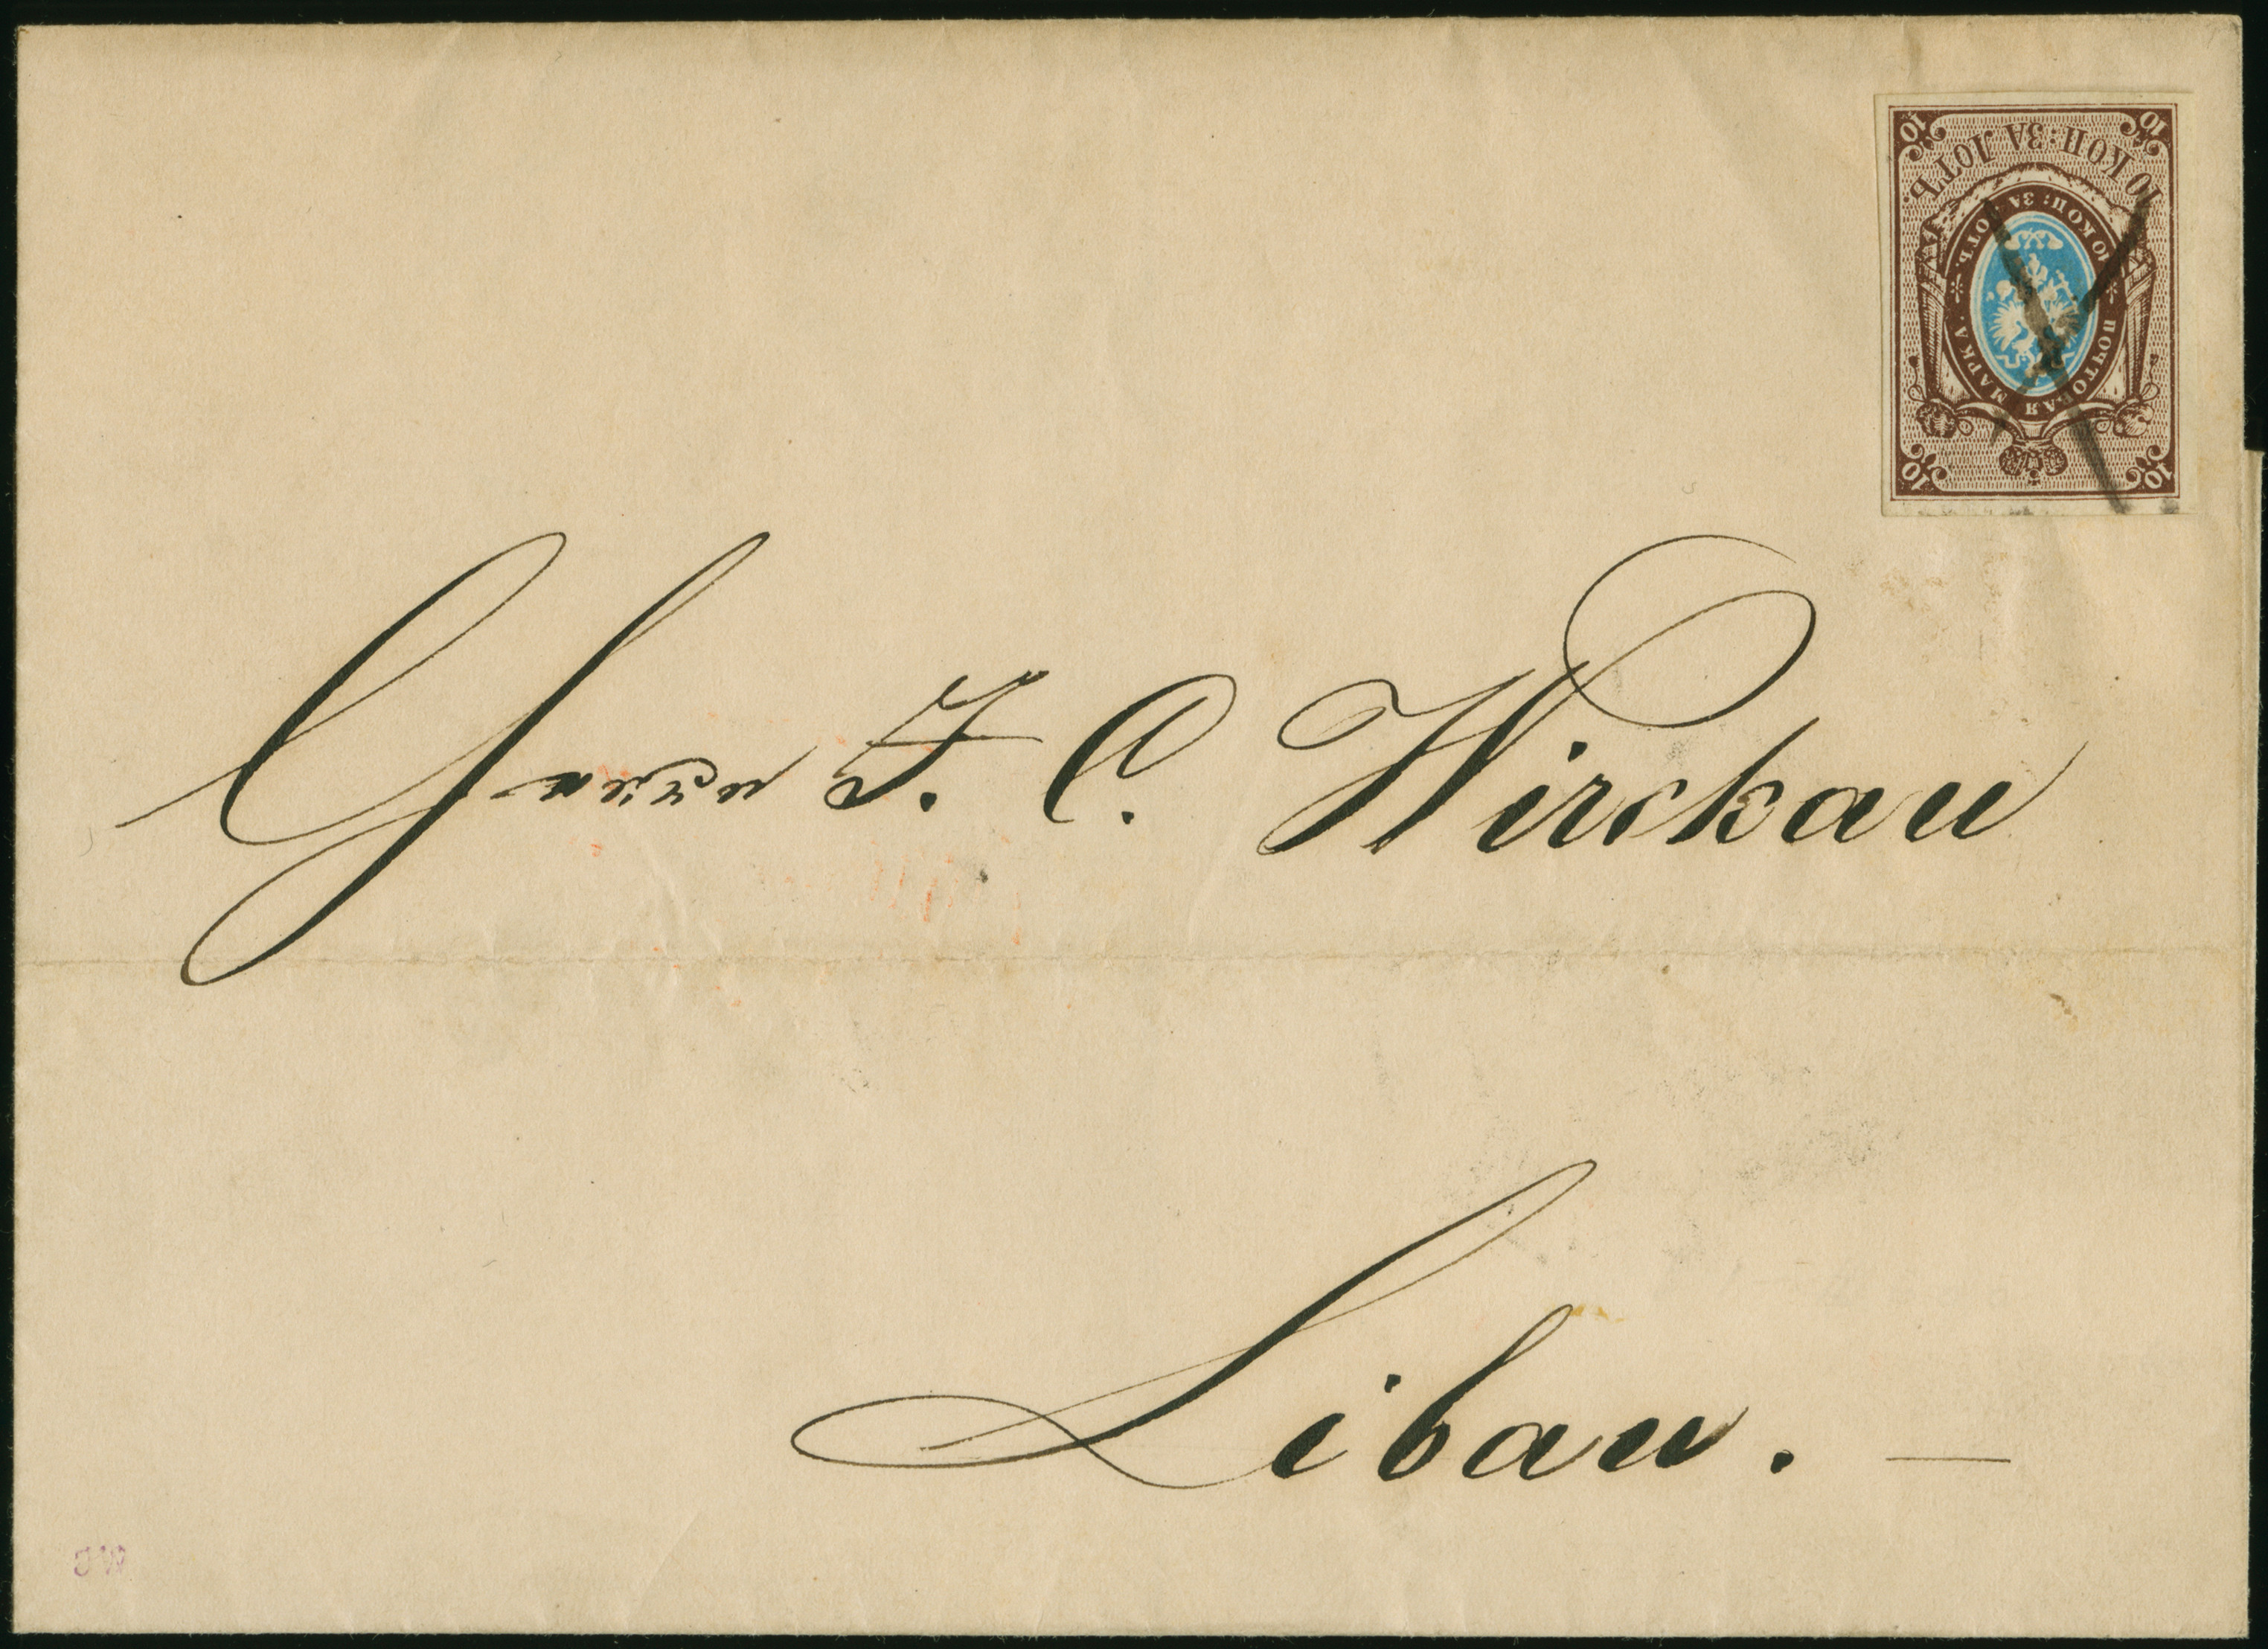 10 10
10 КОП: ЗА ЛОТЪ.
10 КОП: ЗА ЛОТЪ. * ПОЧТОВАЯ МАРКА. *
10 10
Herrn F. C. Wirckau
Libau. —
JW